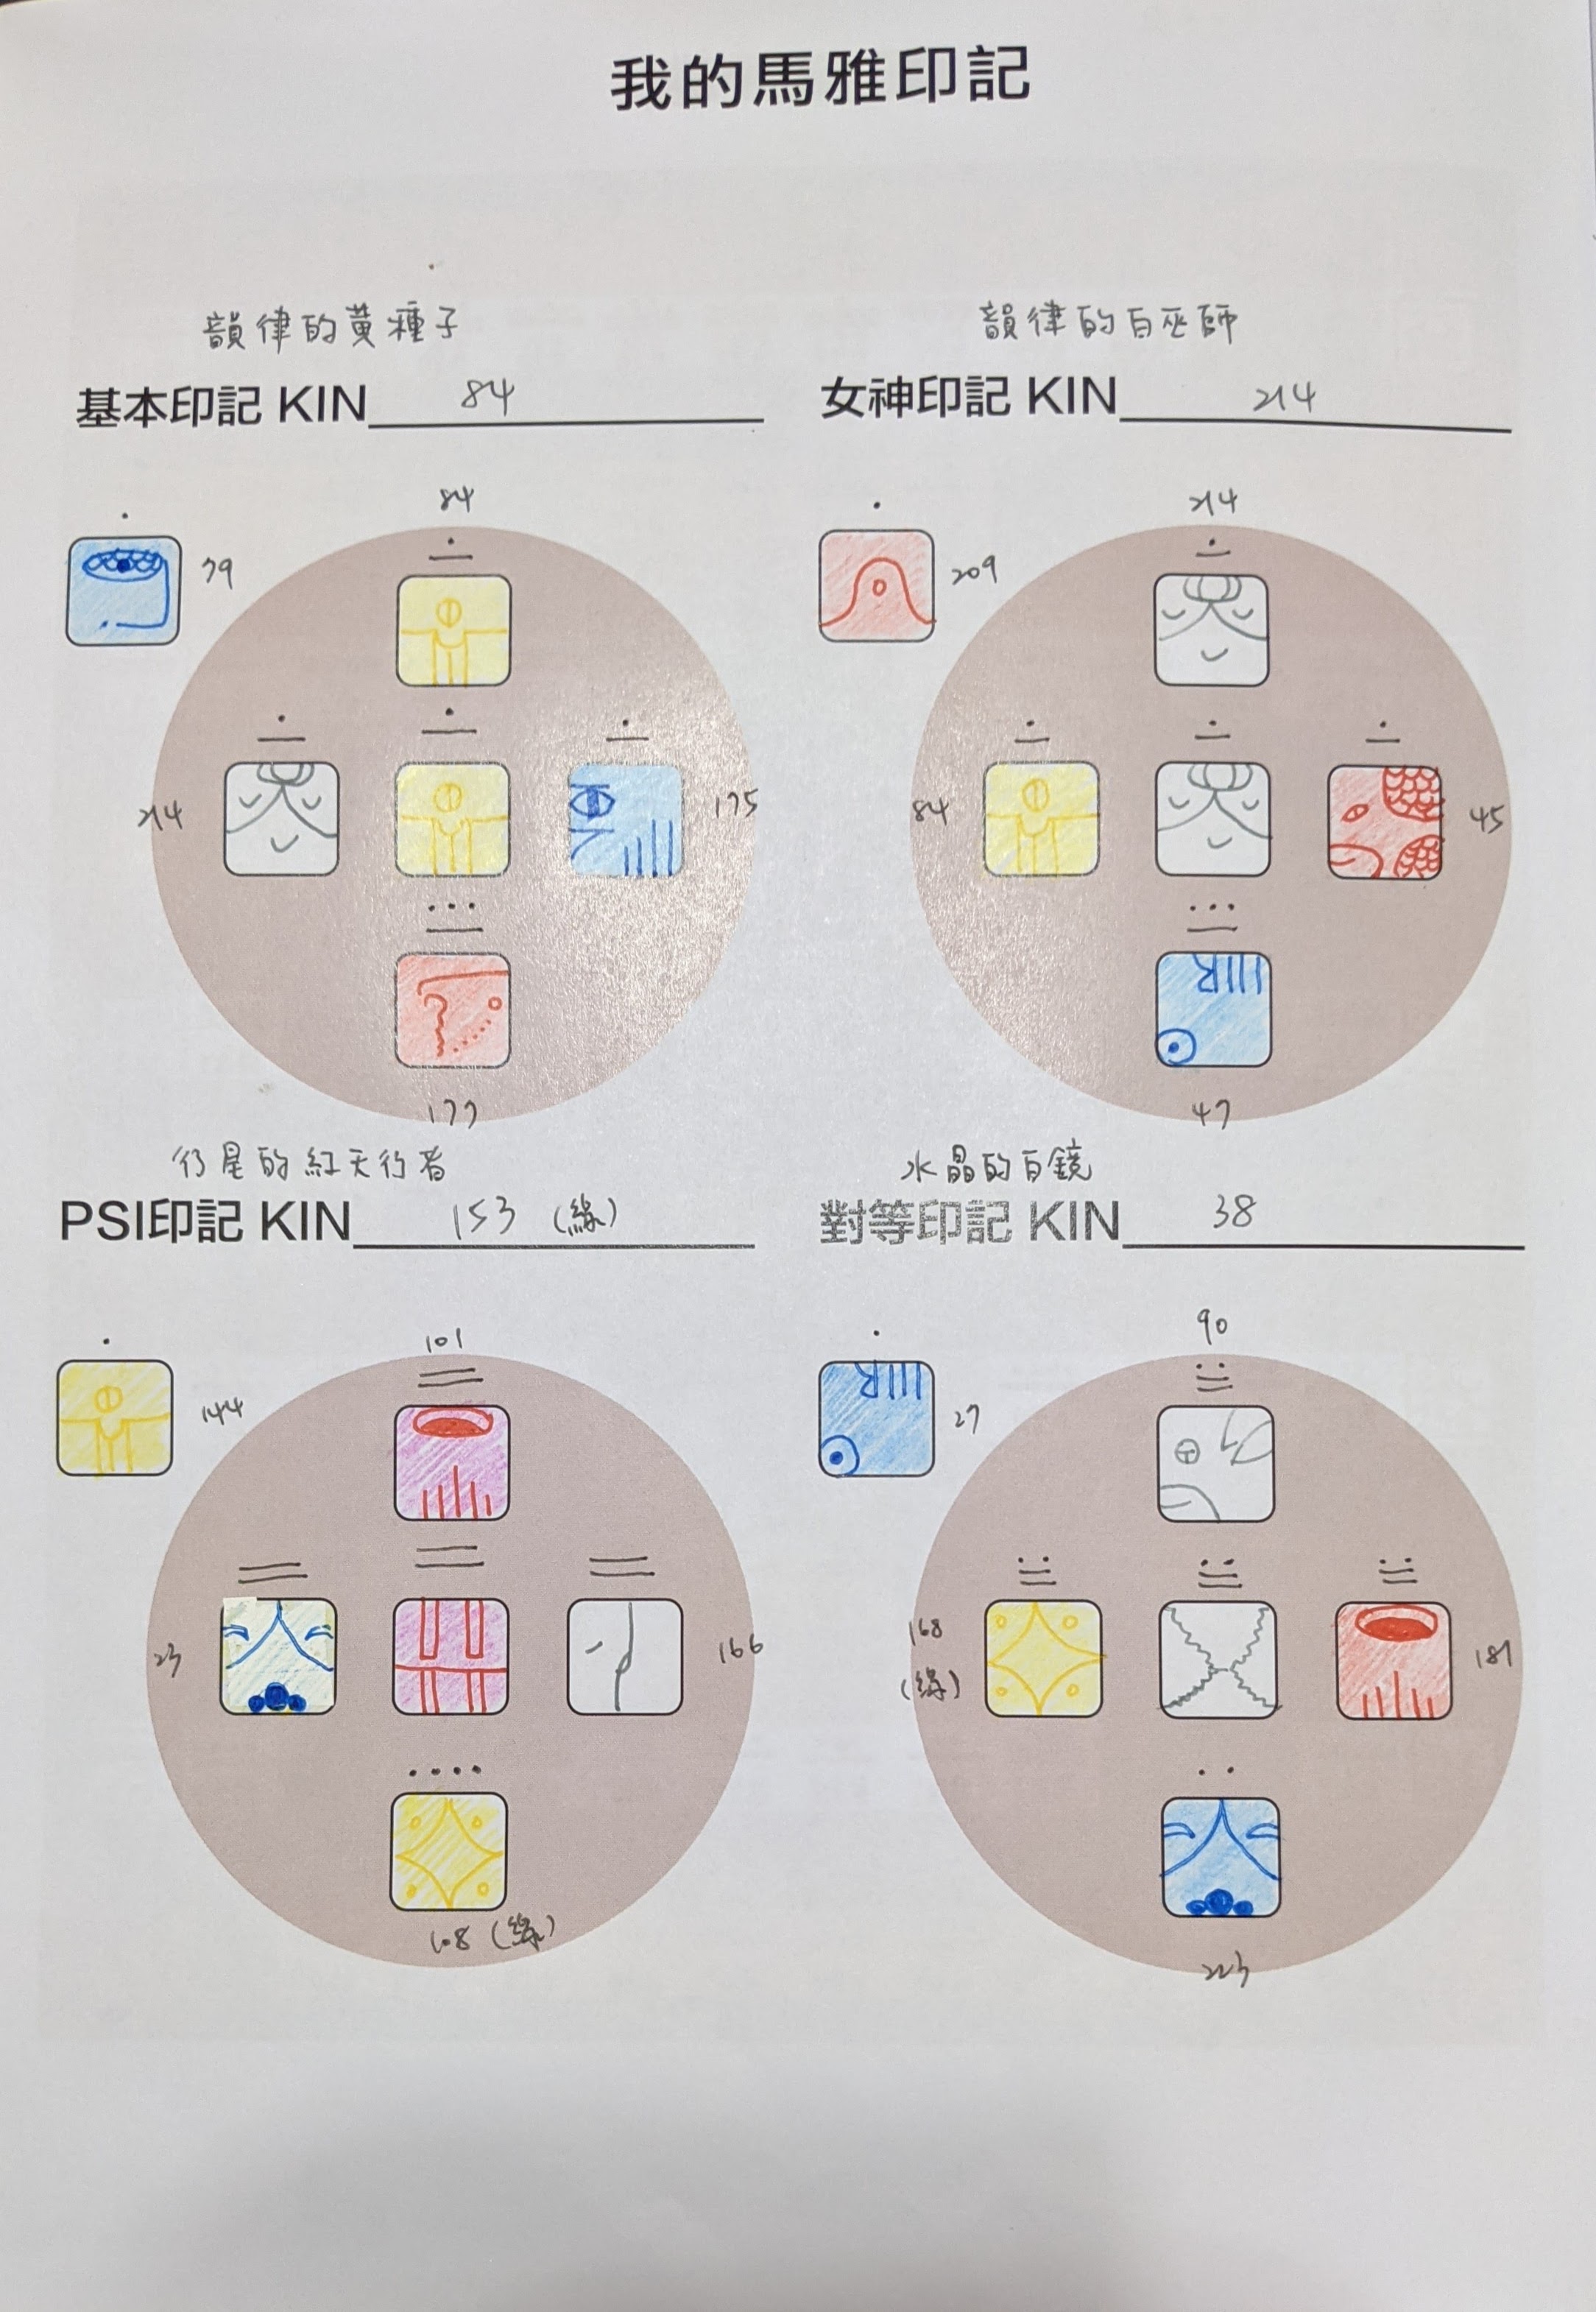 我的馬雅印記
韻律的黃種子
基本印記 KIN 84
84
79
214
175
177
韻律的白巫師
女神印記 KIN 214
214
209
84
45
47
行星的紅天行者
PSI印記 KIN 153 (綠)
101
144
23
166
108 (綠)
水晶的白鏡
對等印記 KIN 38
90
27
168
(綠)
181
223